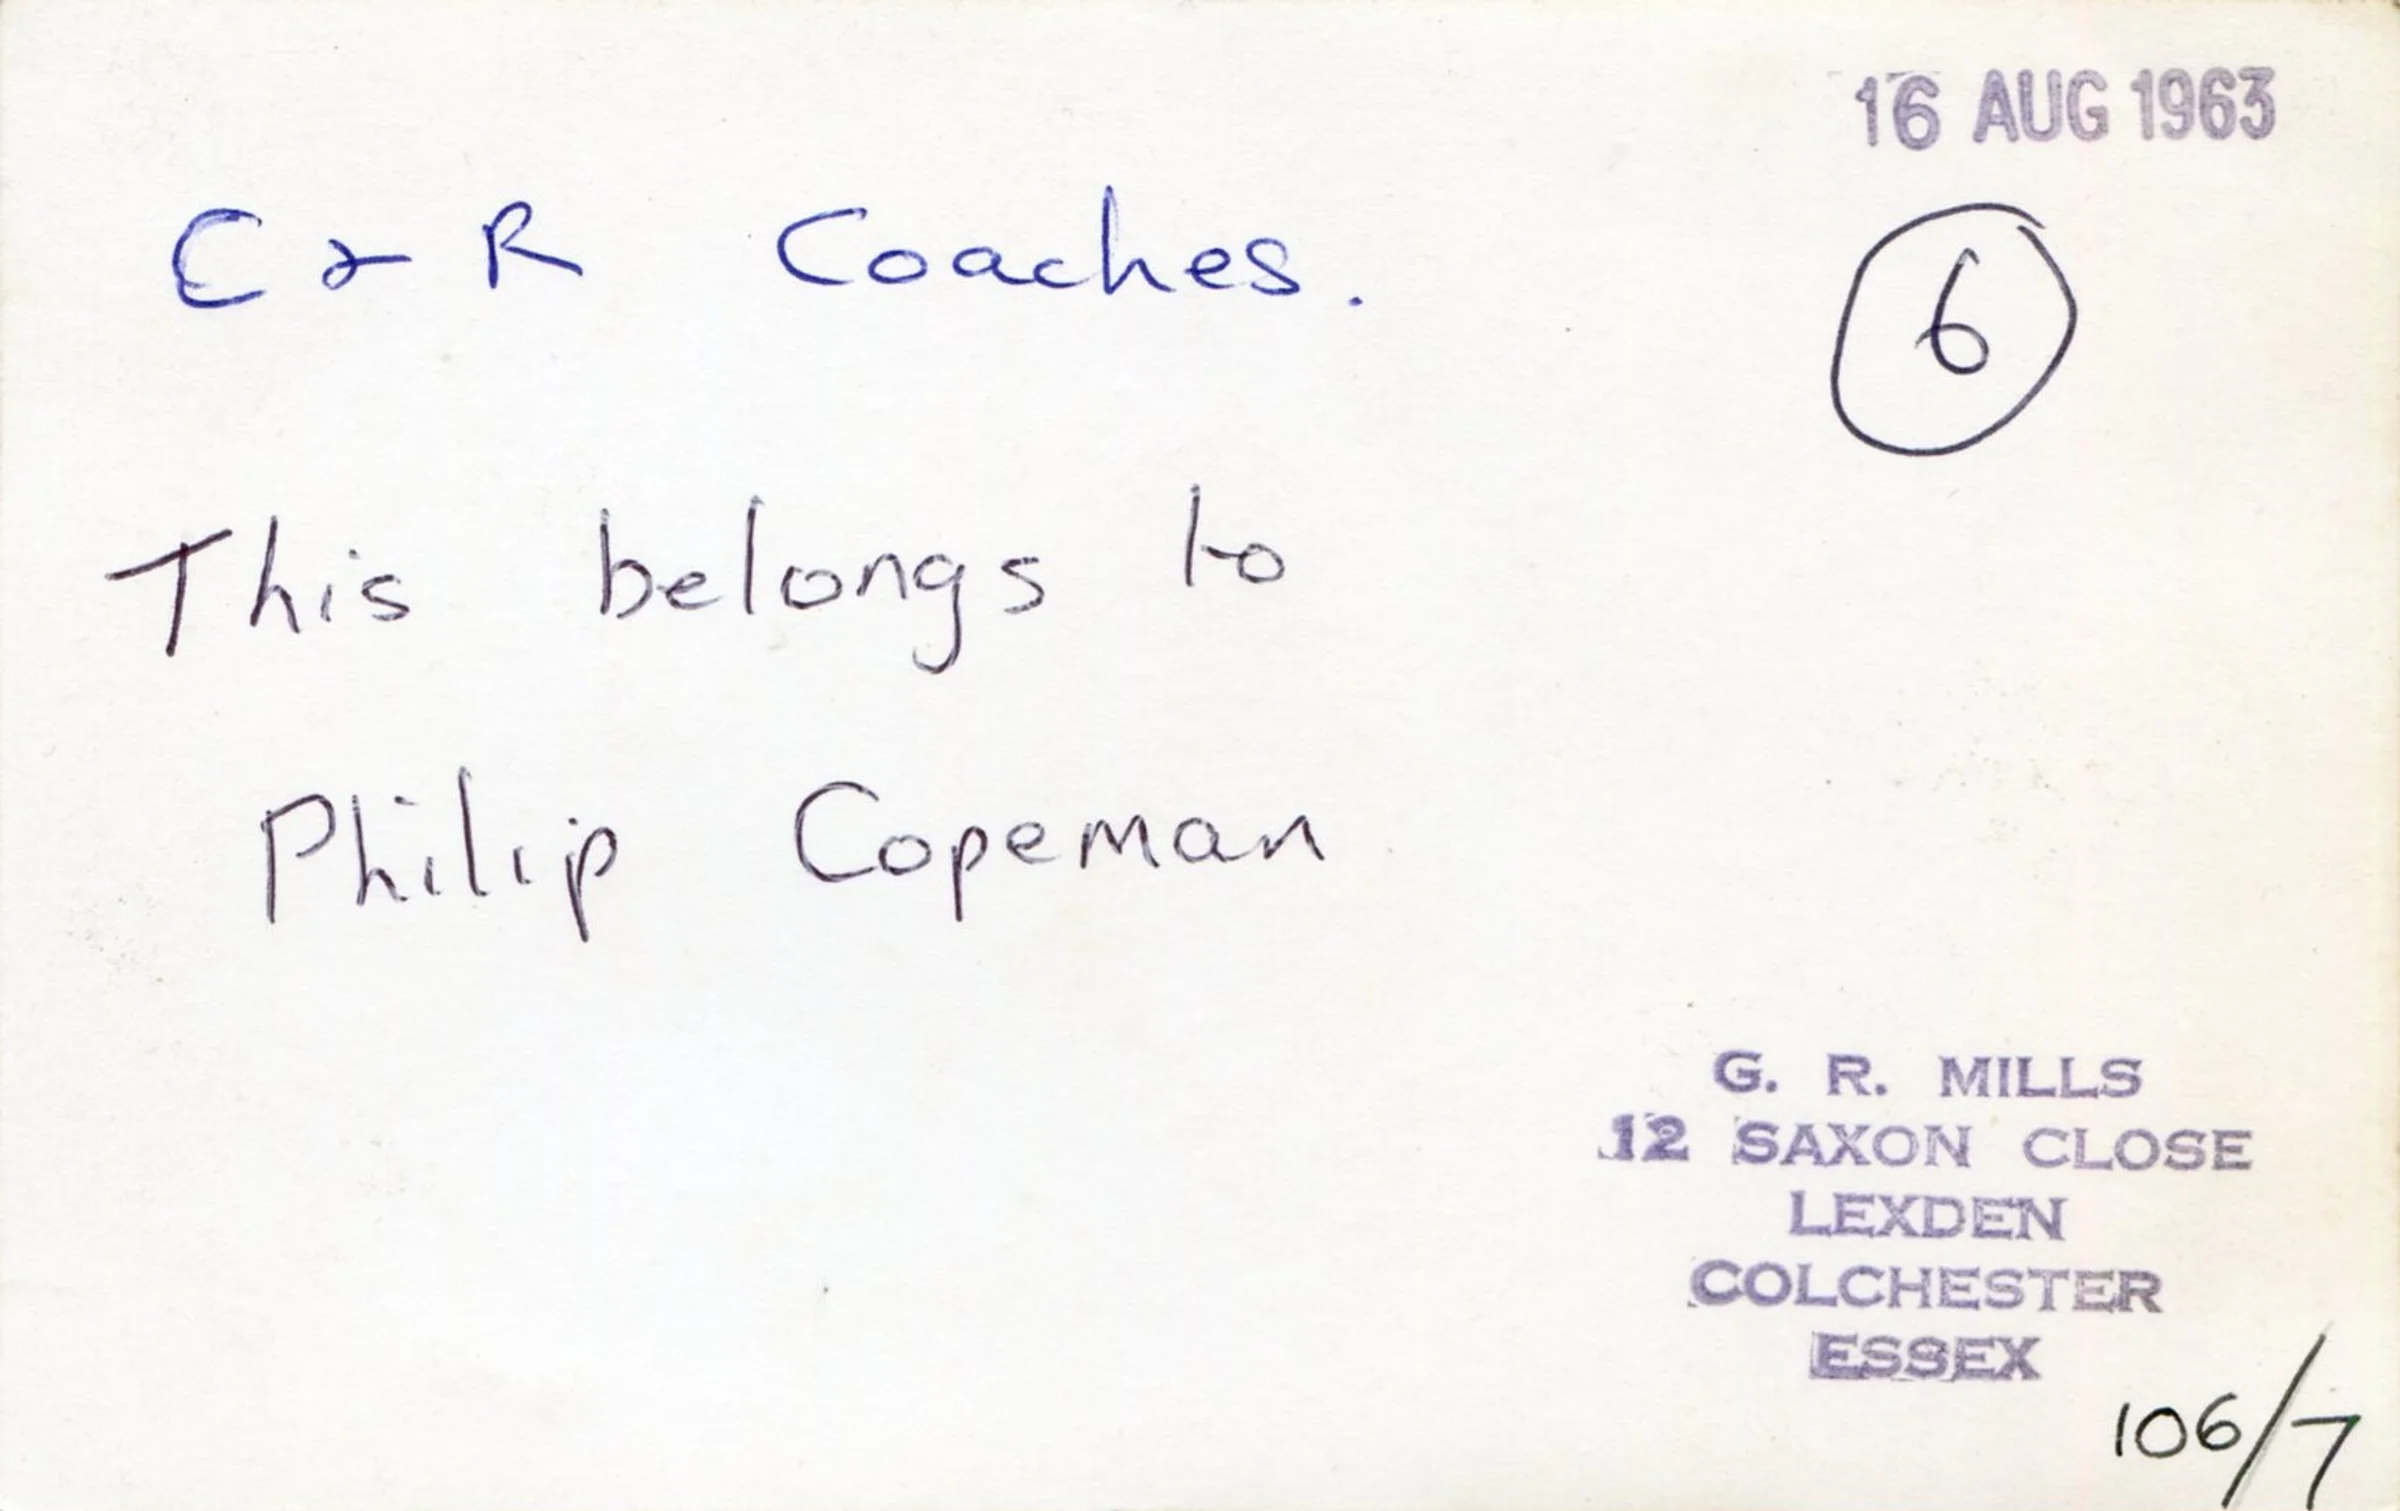 16 AUG 1963
C & R Coaches.
6
This belongs to
Philip Copeman
G. R. MILLS
12 SAXON CLOSE
LEXDEN
COLCHESTER
ESSEX
106/7